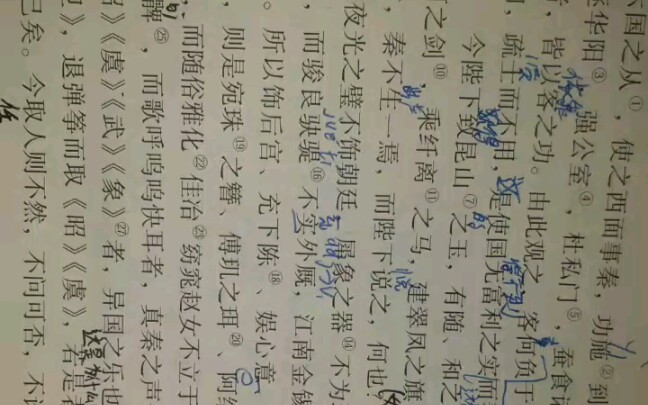 国之从①，使之西面事秦，功施②到
华阳③，强公室④，杜私门⑤，蚕食
，皆以客之功。由此观之，客何负于
，疏士而不用，是使国无富利之实而
今陛下致昆山⑦之玉，有随、和之
之剑⑩，乘纤离⑪之马，建翠凤之旗
，秦不生一焉，而陛下说之，何也
夜光之璧不饰朝廷，犀象之器⑭不为
，而骏良駃騠⑯不实外厩，江南金锡
。所以饰后宫、充下陈⑱、娱心意
，则是宛珠⑲之簪、傅玑之珥⑳、阿
而随俗雅化㉒佳冶㉓窈窕赵女不立于
髀㉕，而歌呼呜呜快耳者，真秦之声
昭》《虞》《武》《象》㉗者，异国之乐也
》，退弹筝而取《昭》《虞》，若是者
已矣。今取人则不然，不问可否，不